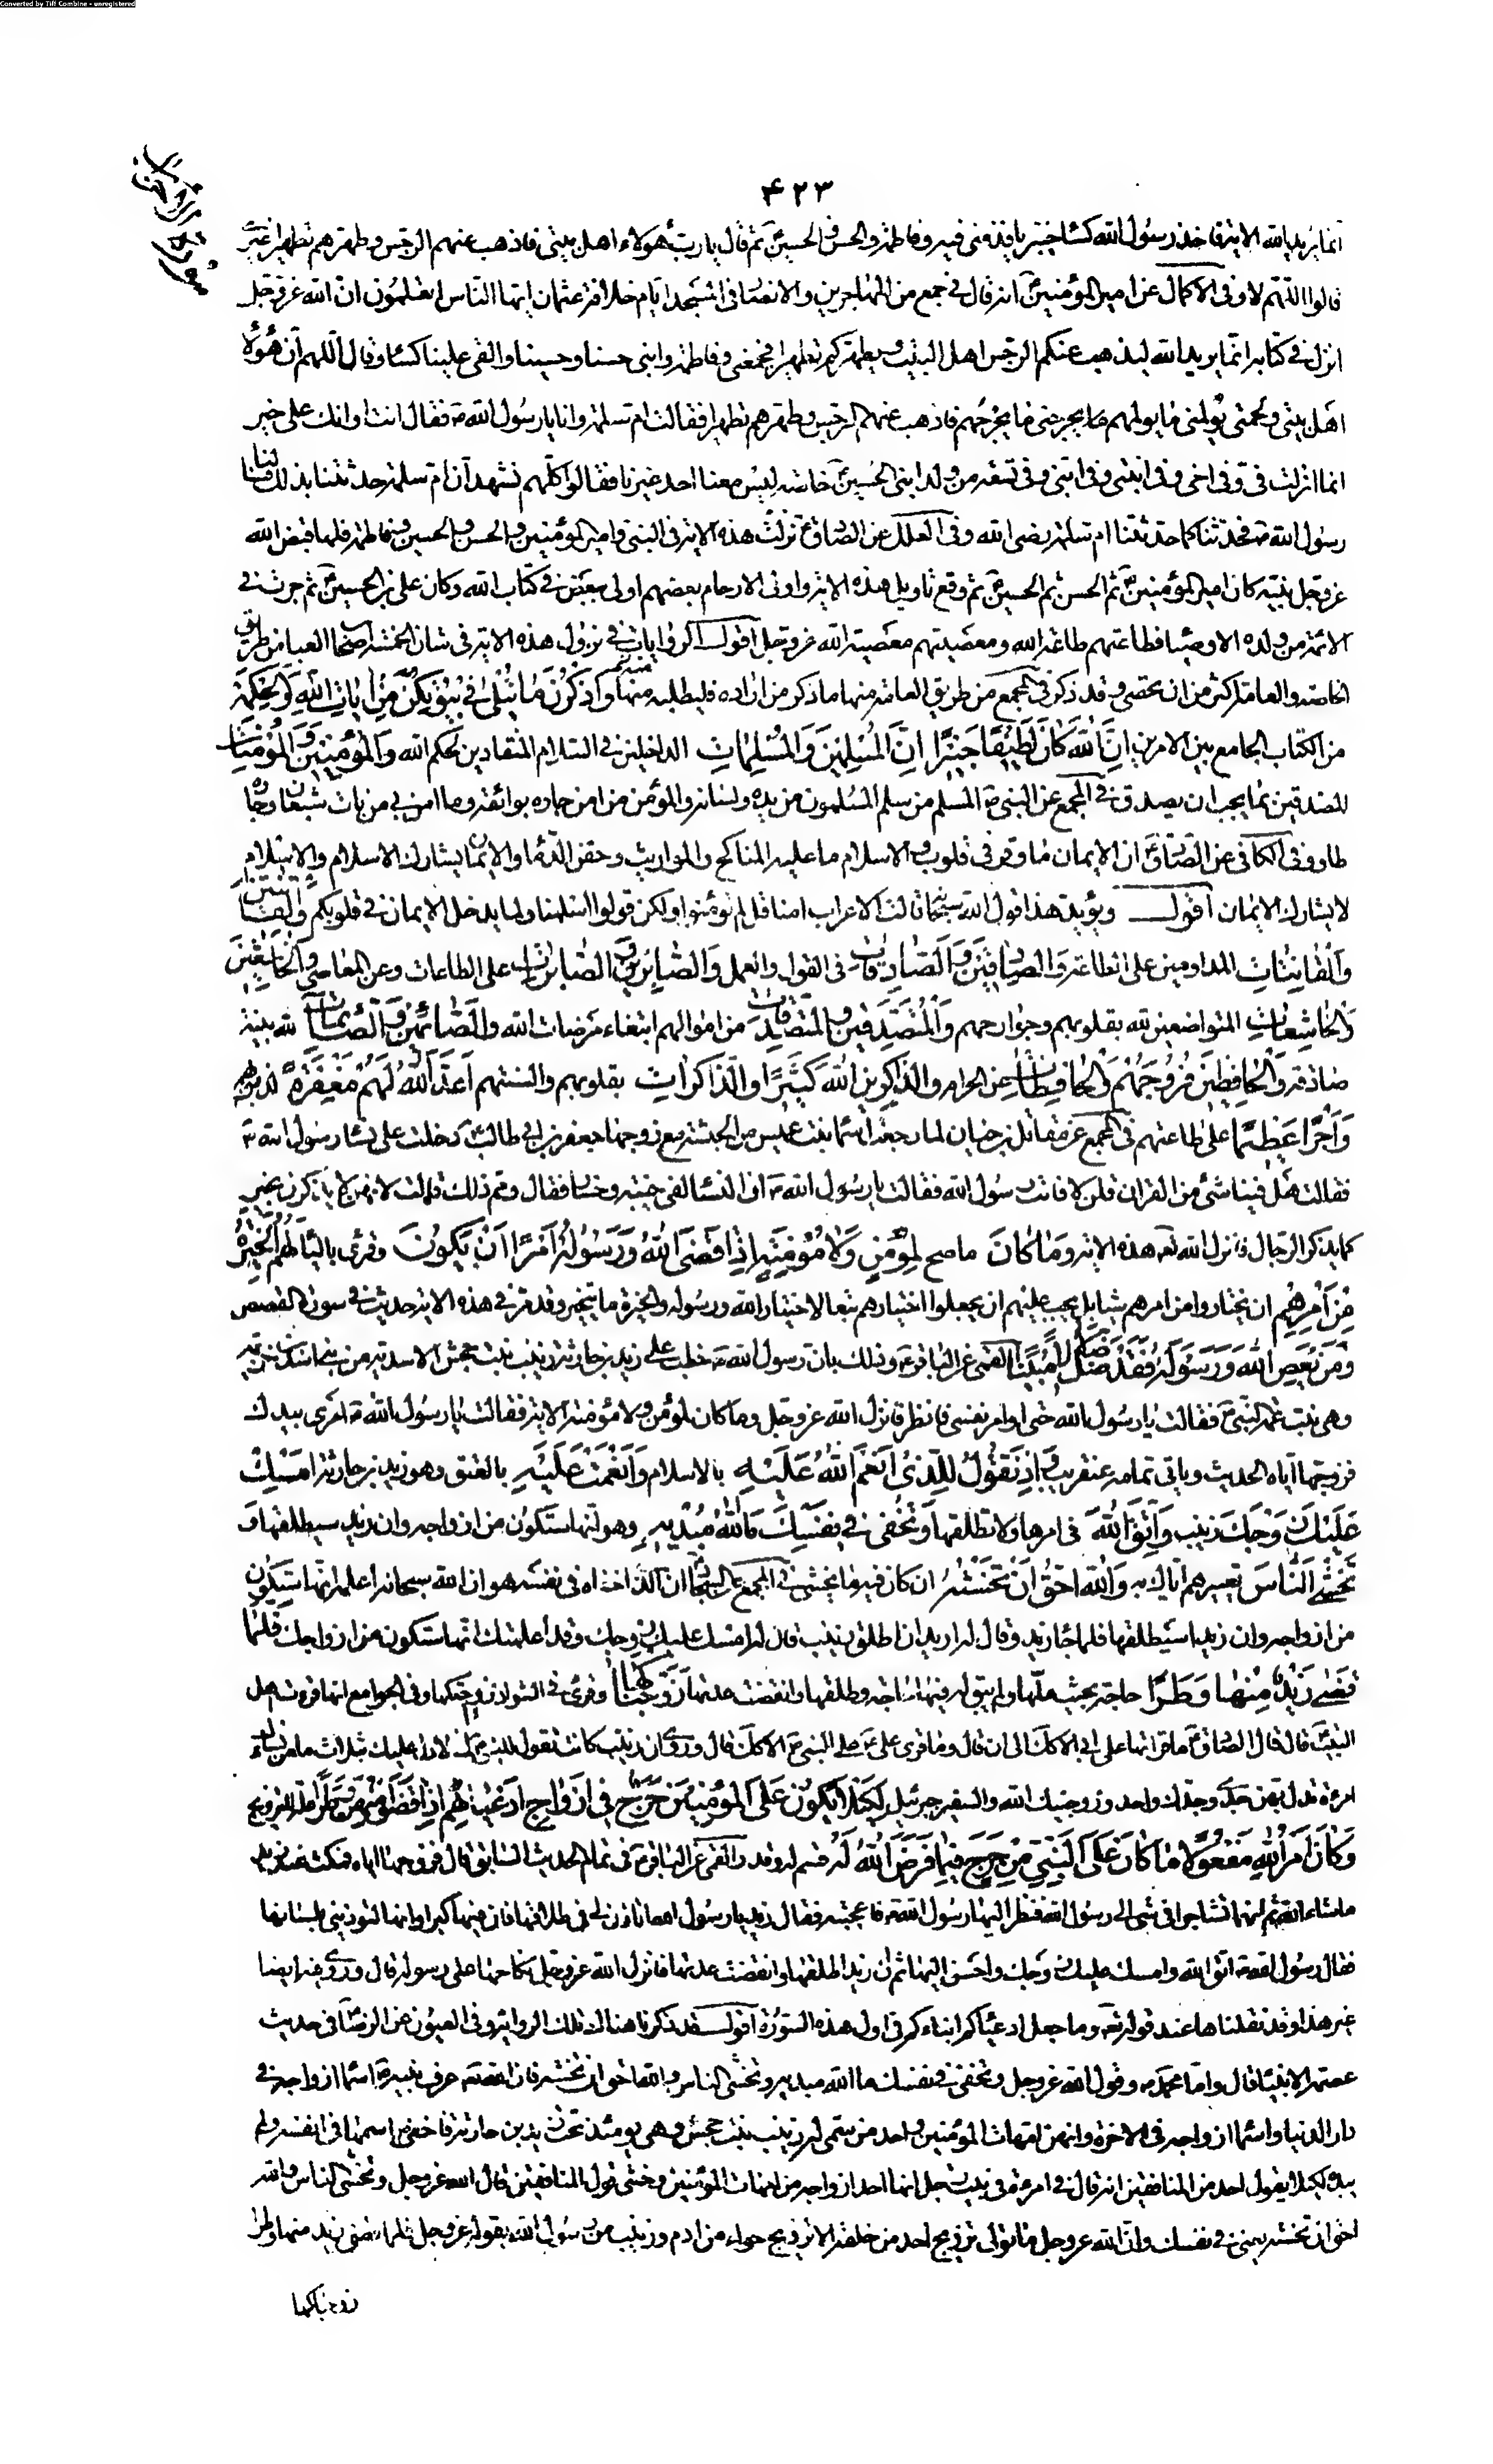 Converted by Tiff Combine - unregistered
سورة الاحزاب
۴۲۳
انما يريد الله الاية فاخذ رسول الله كساء خيبريا فدفنى فيه وفاطمة والحسن والحسين ثم قال يا رب هؤلاء اهل بيتى فاذهب عنهم الرجس وطهرهم تطهيرا غيرى
قالوا اللهم لا وفى الاكمال عن امير المؤمنين انه قال فى جمع من المهاجرين والانصار فى المسجد ايام خلافة عثمان ايها الناس اتعلمون ان الله عز وجل
انزل فى كتابه انما يريد الله ليذهب عنكم الرجس اهل البيت ويطهركم تطهيرا فجمعنى وفاطمة وابنى حسنا وحسينا والقى علينا كساء وقال اللهم ان هؤلاء
اهل بيتى ولحمتى يؤلمنى ما يؤلمهم ويجرحنى ما يجرحهم فاذهب عنهم الرجس وطهرهم تطهيرا فقالت ام سلمة وانا يا رسول الله ص فقال انت او انك على خير
انما انزلت فى وفى اخى وفى ابنتى وفى ابنى وفى تسعة من ولد ابنى الحسين خاصة ليس معنا احد غيرنا فقالوا كلهم نشهد ان ام سلمة حدثتنا بذلك فسالنا
رسول الله ص فحدثنا كما حدثتنا ام سلمة رضى الله وفى العلل عن الصادق ع نزلت هذه الاية فى النبى وامير المؤمنين والحسن والحسين وفاطمة فلما قبض الله
عز وجل نبيه كان امير المؤمنين ثم الحسن ثم الحسين ثم وقع تاويل هذه الاية واولى الارحام بعضهم اولى ببعض فى كتاب الله وكان على بن الحسين ثم جرت فى
الائمة من ولده الاوصياء فطاعتهم طاعة الله ومعصيتهم معصية الله عز وجل اقول والروايات فى نزول هذه الاية فى شان الخمسة اصحاب العبا من طريق
الخاصة والعامة اكثر من ان تحصى وقد ذكر فى المجمع من طريق العامة منها ما ذكر من اراده فليطلبه منه واذكرن ما يتلى فى بيوتكن من ايات الله والحكمة
من الكتاب الجامع بين الامرين ان الله كان لطيفا خبيرا ان المسلمين والمسلمات الداخلين فى السلام المنقادين لحكم الله والمؤمنين والمؤمنات
المصدقين بما يجب ان يصدق فى المجمع عن النبى ص المسلم من سلم المسلمون من يده ولسانه والمؤمن من امن جاره بوائقه وما امن بى من بات شبعان وجاره
طاو وفى الكافى عن الصادق ان الايمان ما وقر فى القلوب والاسلام ما عليه المناكح والمواريث وحقن الدماء والايمان يشارك الاسلام والاسلام
لا يشارك الايمان اقول ويؤيد هذا قول الله سبحانه قالت الاعراب امنا قل لم تؤمنوا ولكن قولوا اسلمنا ولما يدخل الايمان فى قلوبكم والقانتين
والقانتات المداومين على الطاعة والصادقين والصادقات فى القول والعمل والصابرين والصابرات على الطاعات وعن المعاصى والخاشعين
والخاشعات المتواضعين لله بقلوبهم وجوارحهم والمتصدقين والمتصدقات من اموالهم ابتغاء مرضات الله والصائمين والصائمات لله بنية
صادقة والحافظين فروجهم والحافظات عن الحرام والذاكرين الله كثيرا والذاكرات بقلوبهم والسنتهم اعد الله لهم مغفرة لذنوبهم
واجرا عظيما على طاعتهم فى المجمع عن مقاتل بن حيان لما رجعت اسماء بنت عميس من الحبشة مع زوجها جعفر بن ابى طالب دخلت على نساء رسول الله ص
فقالت هل فينا شئ من القران قلن لا فاتت رسول الله فقالت يا رسول الله ص ان النساء لفى خيبة وخسار فقال ومم ذلك قالت لانهن لا يذكرن بخير
كما يذكر الرجال فانزل الله تعه هذه الاية وما كان ما صح لمؤمن ولا مؤمنة اذا قضى الله ورسوله امرا ان يكون وقرئ بالياء لهم الخيرة
من امرهم ان يختاروا من امرهم شيئا بل يجب عليهم ان يجعلوا اختيارهم تبعا لاختيار الله ورسوله والخيرة ما يتخير وقد مر فى هذه الاية حديث فى سورة القصص
ومن يعص الله ورسوله فقد ضل ضلالا مبينا القمى عن الباقر ع وذلك بان رسول الله ص خطب على زيد بن حارثة زينب بنت جحش الاسدية من بنى اسد بن خزيمة
وهى بنت عمة النبى ص فقالت يا رسول الله حتى اوامر نفسى فانظر فانزل الله عز وجل وما كان لمؤمن ولا مؤمنة الاية فقالت يا رسول الله ص امرى بيدك
فزوجها اياه الحديث وياتى تمامه عنقريب واذ تقول للذى انعم الله عليه بالاسلام وانعمت عليه بالعتق وهو زيد بن حارثة امسك
عليك زوجك زينب واتق الله فى امرها ولا تطلقها وتخفى فى نفسك ما الله مبديه وهو انها ستكون من ازواجه وان زيد سيطلقها و
تخشى الناس تعييرهم اياك به والله احق ان تخشيه ان كان فيه ما يخشى فى المجمع عن السجاد ان الذى اخفاه فى نفسه هو ان الله سبحانه اعلمه انها ستكون
من ازواجه وان زيدا سيطلقها فلما جاء زيد وقال له اريد ان اطلق زينب قال له امسك عليك زوجك وقد اعلمتك انها ستكون من ازواجك فلما
قضى زيد منها وطرا حاجة بحيث ملها ولم يبق له فيها حاجة وطلقها وانقضت عدتها زوجناكها وقرئ فى الشواذ زوجتكها وفى الجوامع انها قراءة اهل
البيت قال قال الصادق ع ما قراتها على ابى الا كذلك الى ان قال وما قرئ على ع على النبى ص الا كذلك قال وروى ان زينب كانت تقول للنبى ص انى لادل عليك بثلاث ما من نسائك
امرءة تدل بهن جدى وجدك واحد وزوجنيك الله والسفير جبرئيل لكيلا يكون على المؤمنين حرج فى ازواج ادعيائهم اذا قضوا منهن وطرا
وكان امر الله مفعولا ما كان على النبى من حرج فيما فرض الله له قسم له وقدر القمى عن الباقر ع فى تمام الحديث السابق قال فزوجها اياه فمكثت عند زيد
ما شاء الله ثم انهما تشاجرا فى شئ الى رسول الله فنظر اليها رسول الله ص فاعجبته فقال زيد يا رسول الله تاذن لى فى طلاقها فان فيها كبرا وانها لتؤذينى بلسانها
فقال رسول الله ص اتق الله وامسك عليك زوجك واحسن اليها ثم ان زيدا طلقها وانقضت عدتها فانزل الله عز وجل نكاحها على رسوله قال وروى فيه ايضا
غير هذا وقد نقلناها عند قوله تعه وما جعل ادعياءكم ابناءكم فى اول هذه السورة اقول قد ذكرنا هناك تلك الرواية وفى العيون عن الرضا فى حديث
عصمة الانبياء قال واما محمد ص وقول الله عز وجل وتخفى فى نفسك ما الله مبديه وتخشى الناس والله احق ان تخشيه فان الله تعه عرف نبيه ص اسماء ازواجه فى
دار الدنيا واسماء ازواجه فى الاخرة وانهن امهات المؤمنين واحد من سمى له زينب بنت جحش وهى يومئذ تحت زيد بن حارثة فاخفى اسمها فى نفسه ولم
يبده لكيلا يقول احد من المنافقين انه قال فى امرءة فى بيت رجل انها احد ازواجه من امهات المؤمنين وخشى قول المنافقين قال الله عز وجل وتخشى الناس والله
احق ان تخشيه يعنى فى نفسك وان الله عز وجل ما تولى تزويج احد من خلقه الا تزويج حواء من ادم وزينب من رسول الله بقوله عز وجل فلما قضى زيد منها وطرا
زوجناكها